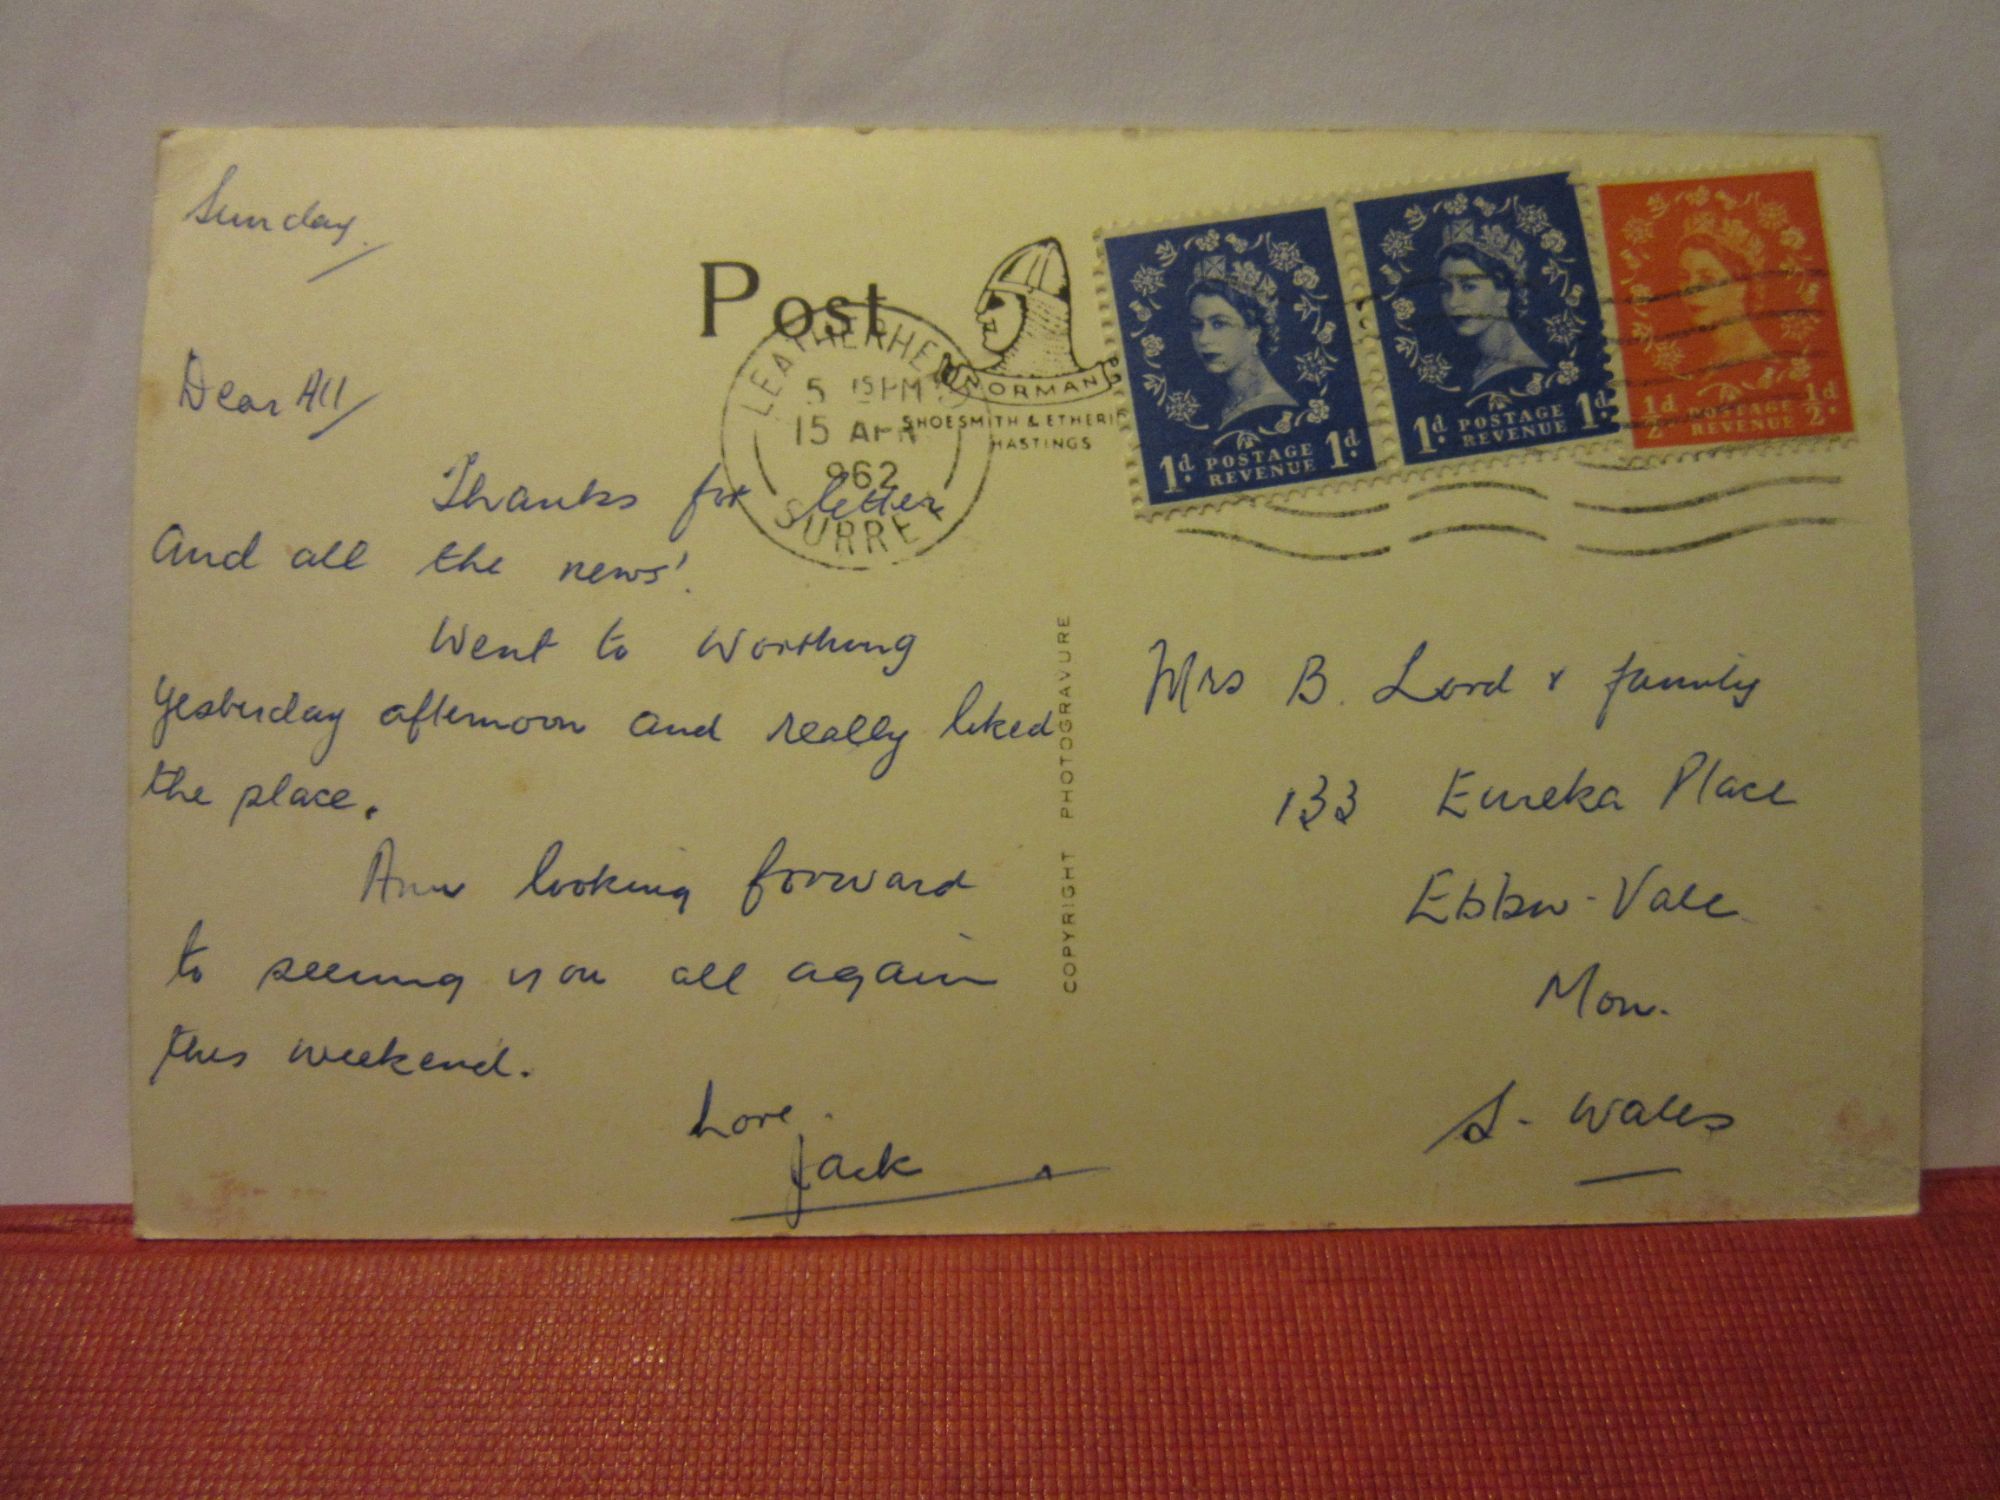 Sunday.
Dear All
Thanks for letter
And all the news!
Went to Worthing
yesterday afternoon and really liked
the place.
Am looking forward
to seeing you all again
this weekend.
Love.
Jack
Post
LEATHERHEAD
5 15 PM
15 APR
962
SURREY
NORMAN
SHOESMITH & ETHERI
HASTINGS
1d POSTAGE 1d
REVENUE
1d POSTAGE 1d
REVENUE
½d POSTAGE ½d
REVENUE
COPYRIGHT PHOTOGRAVURE
Mrs B. Lord & family
133 Eureka Place
Ebbw-Vale
Mon.
S. Wales